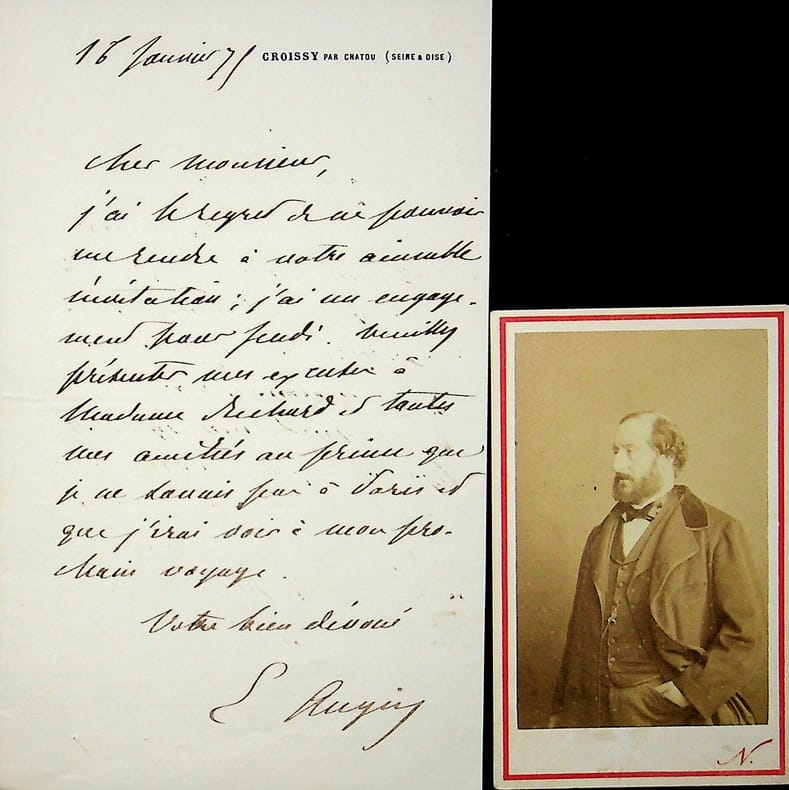 16 Janvier 75 CROISSY PAR CHATOU (SEINE & OISE)
cher monsieur,
j'ai le regret de ne pouvoir
me rendre à votre aimable
invitation; j'ai un engage-
ment pour jeudi. veuillez
présenter mes excuses à
Madame Richard et toutes
mes amitiés au prince que
je ne savais pas à Paris et
que j'irai voir à mon pro-
chain voyage.
Votre bien dévoué
E Augier
N.